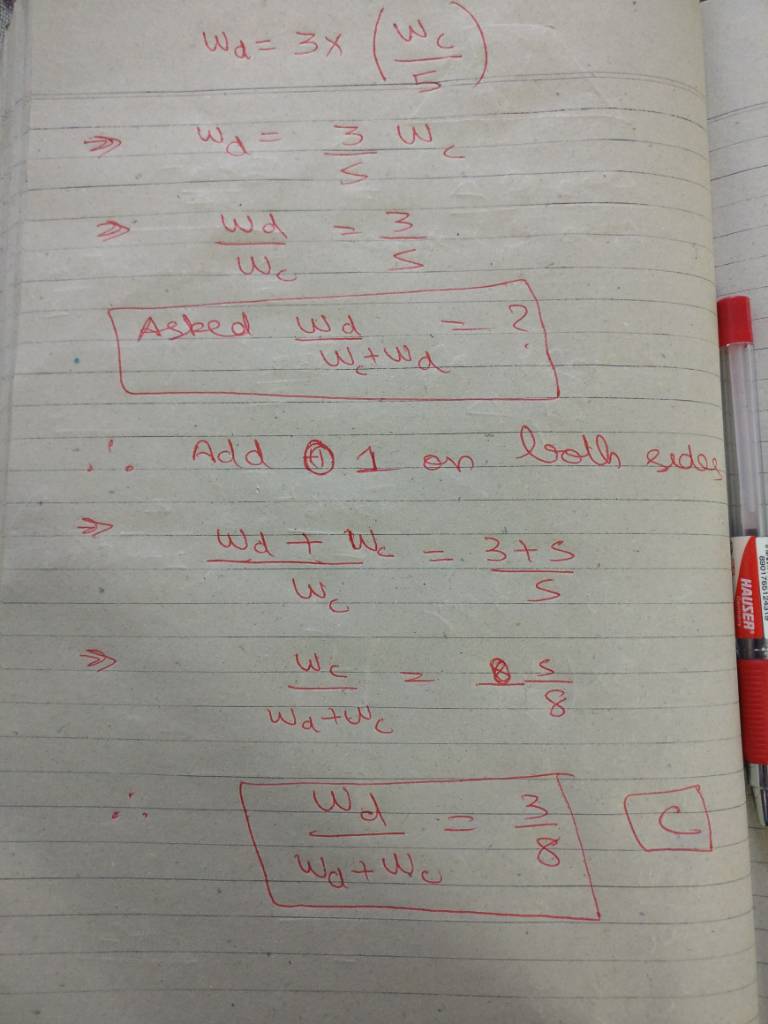 Wd = 3 × (Wc/5)
⇒ Wd = 3/5 Wc
⇒ Wd/Wc = 3/5
Asked Wd/(Wc+Wd) = ?
∴ Add ⊕ 1 on both sides
⇒ (Wd + Wc)/Wc = (3+5)/5
⇒ Wc/(Wd+Wc) = 5/8
∴ Wd/(Wd+Wc) = 3/8 C
HAUSER